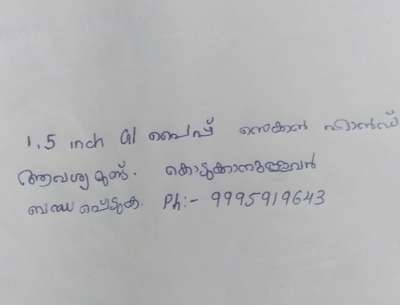 1.5 inch GI പൈപ്പ് സെക്കൻ ഹാൻഡ്
ആവശ്യമുണ്ട്. കൊടുക്കാനുള്ളവർ
ബന്ധപ്പെടുക. Ph:- 9995919643